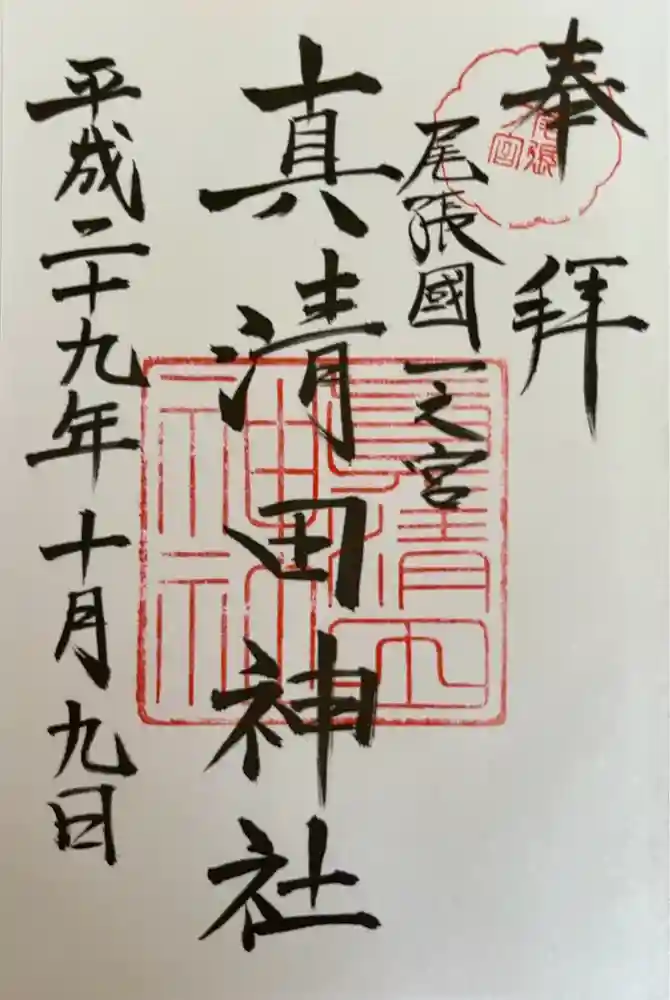 奉拝
尾張國一之宮
真清田神社
平成二十九年十月九日
尾張
真清田
神社